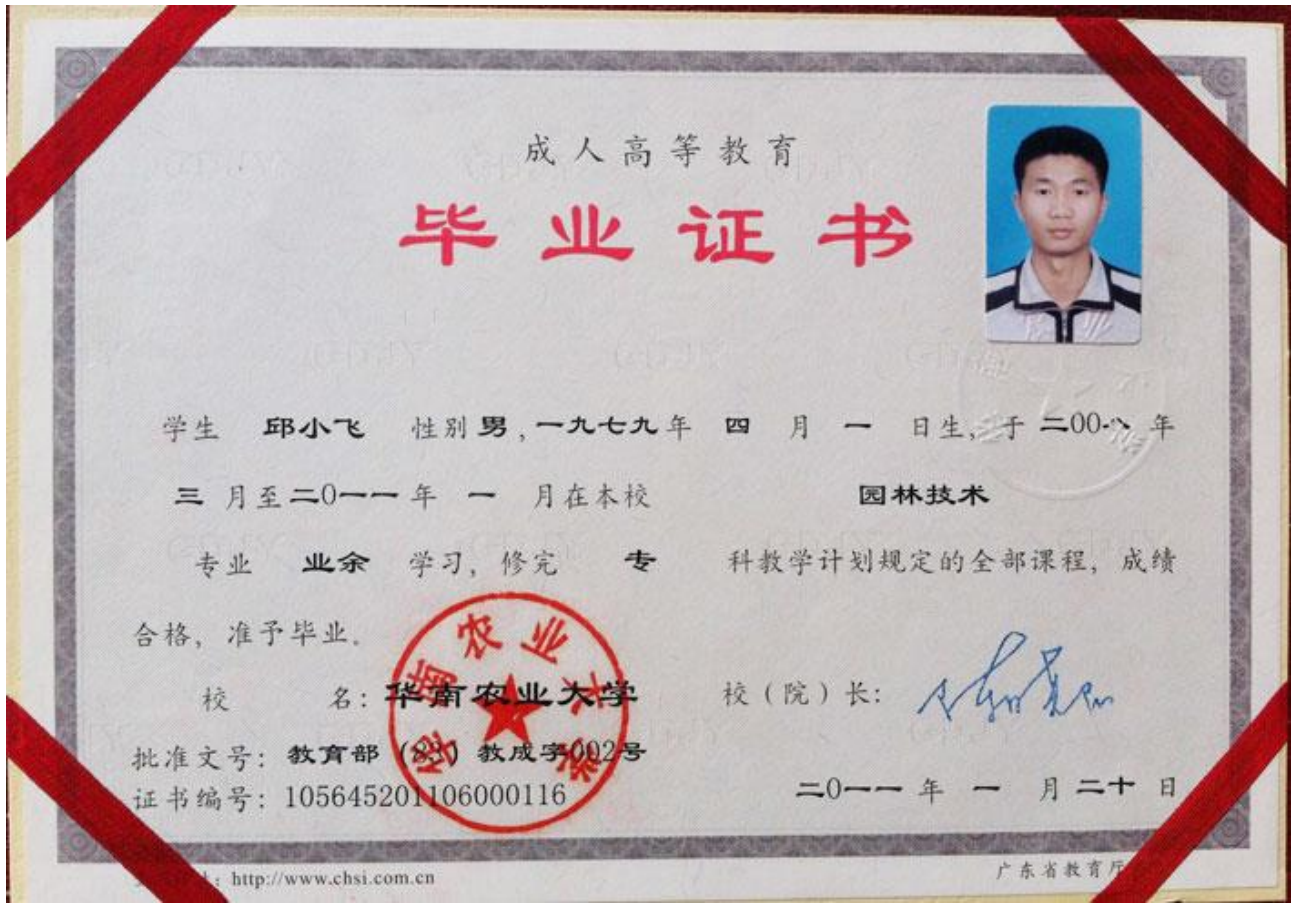 成人高等教育
毕业证书
学生 邱小飞 性别 男，一九七九年 四 月 一 日生，于 二00八 年
三 月至 二0一一 年 一 月在本校 园林技术
专业 业余 学习，修完 专 科教学计划规定的全部课程，成绩
合格，准予毕业。
华南农业大学
校 名：华南农业大学 校（院）长：
批准文号：教育部（83）教成字002号
证书编号：105645201106000116 二0一一 年 一 月 二十 日
http://www.chsi.com.cn 广东省教育厅